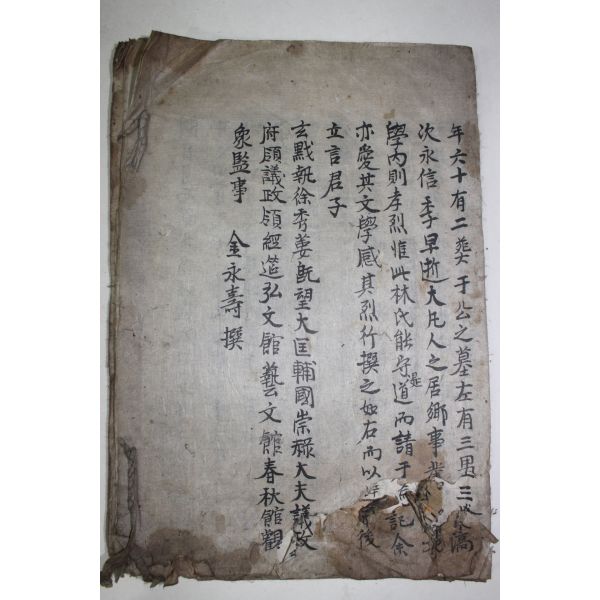 年六十有二葬于公之墓左有三男三
次永信季早逝大凡人之居鄉事
學內則孝烈惟此林氏能守是道而請于余記余
亦愛其文學感其烈行撰之如右而以 後
立言君子
玄黓執徐季秋旣望大匡輔國崇祿大夫議政
府領議政領經筵弘文館藝文館春秋館觀
象監事 金永壽撰